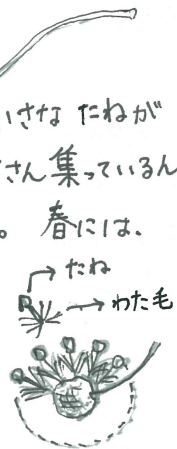 いさな たねが
さん集っているん
。 春には、
たね
わた毛